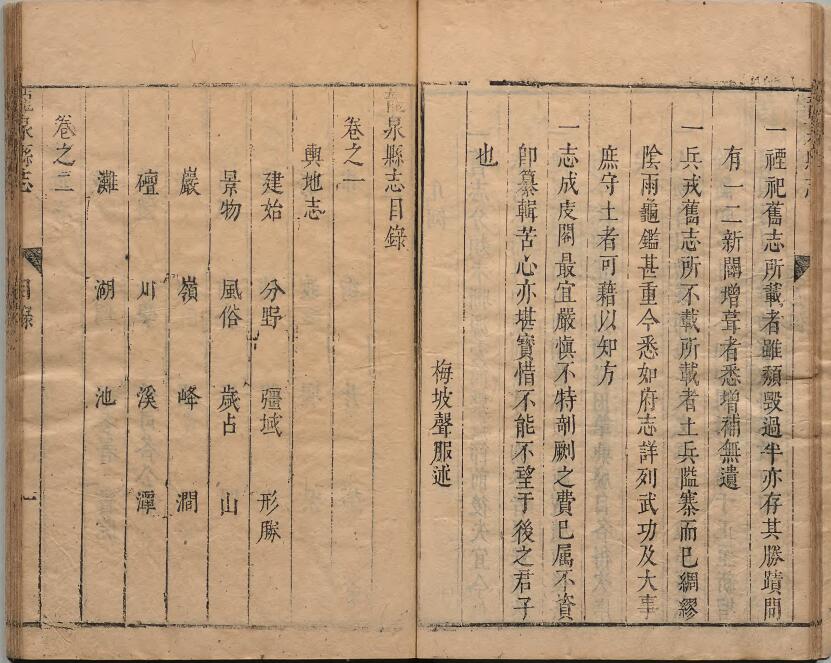 一禋祀舊志所載者雖頹毀過半亦存其勝蹟間
有一二新闢增葺者悉增補無遺
一兵戎舊志所不載所載者土兵隘寨而已綢繆
陰雨龜鑑甚重今悉如府志詳列武功及大事
庶守土者可藉以知方
一志成庋閣最宜嚴慎不特剞劂之費已属不資
卽纂輯苦心亦堪寳惜不能不望于後之君子
也
梅坡聲服述
龍泉縣志目錄
卷之一
輿地志
建始 分野 疆域 形勝
景物 風俗 歲占 山
巖 嶺 峰 澗
磴 川 溪 潭
灘 湖 池
卷之二
龍泉縣志 目錄 一